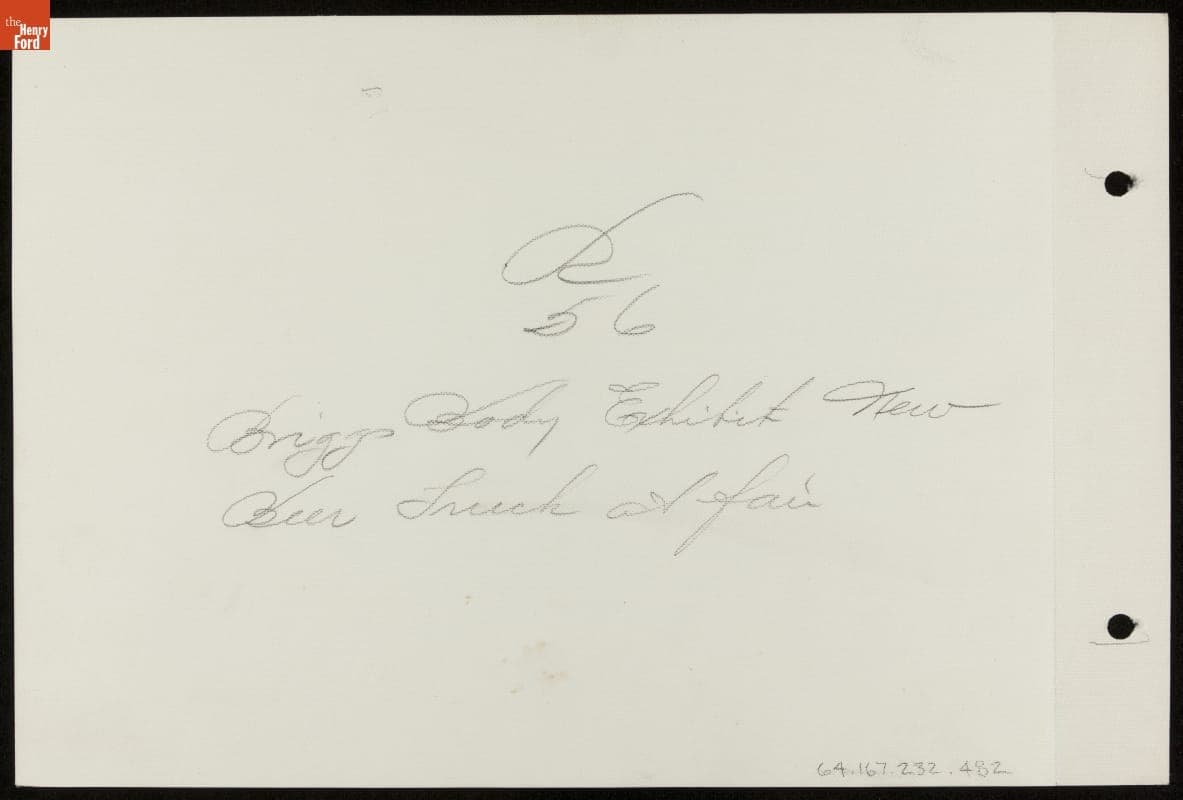 the
Henry
Ford
R
56
Briggs Body Exhibit New
Beer Truck at fair
64.167.232.482